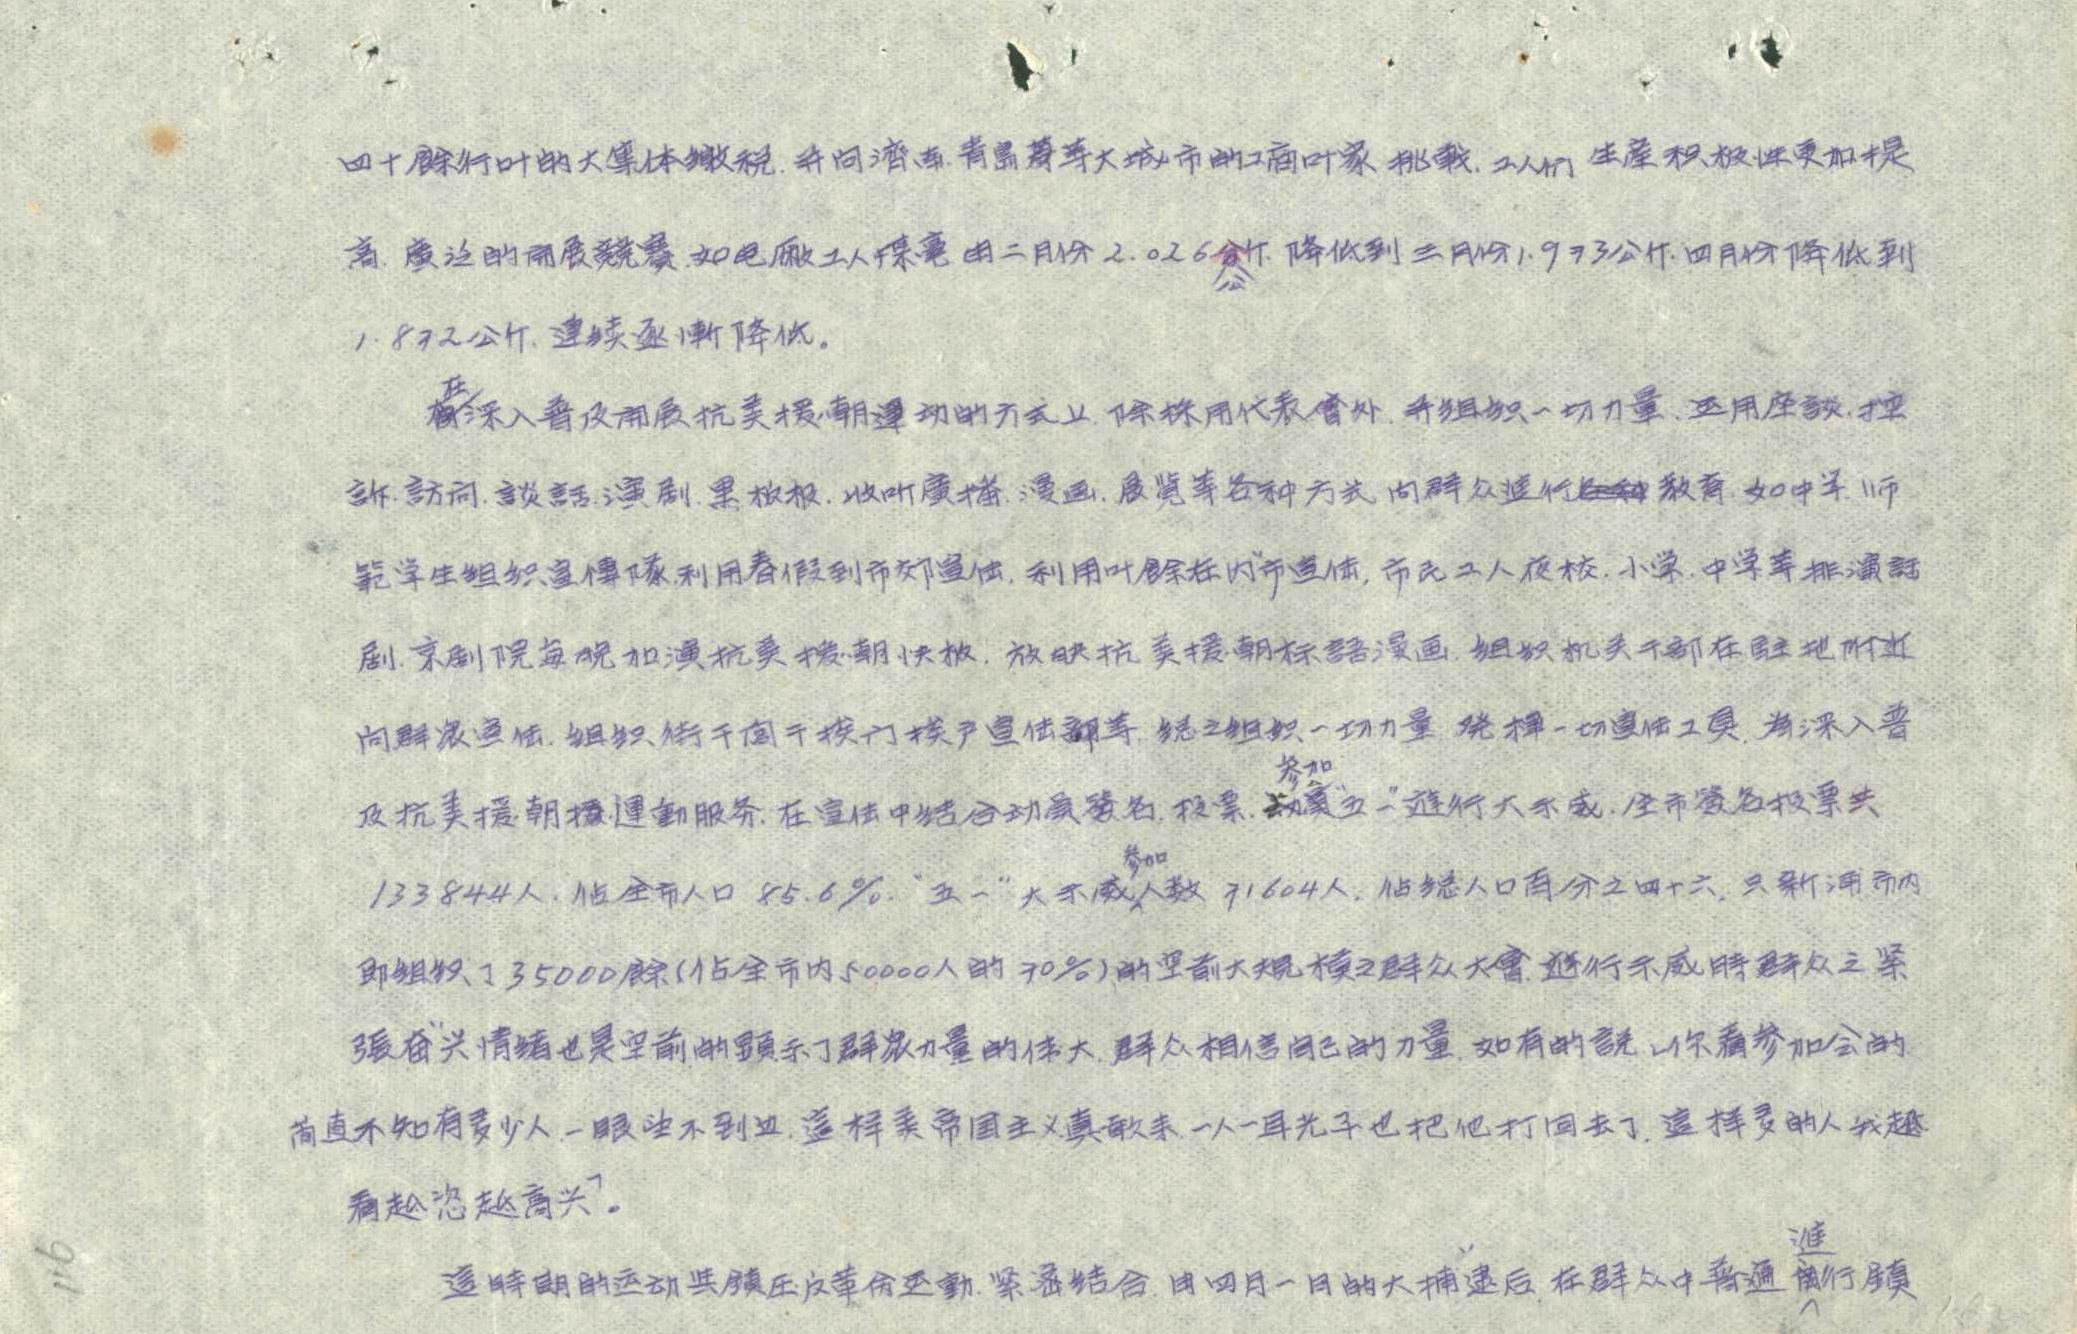 四十餘行叶的大集体繳税.并向濟南.青島等大城市的工商叶家挑戰.工人们生產积极性更加提
高.廣泛的開展競賽.如电廠工人煤耗由二月份2.026公斤.降低到三月份1.973公斤.四月份降低到
1.872公斤.連续逐漸降低。
在深入普及開展抗美援朝運动的方式上.除採用代表會外.并组织一切力量.运用座談.控
訴.訪问.談話.演剧.黑板报.收听廣播.漫画.展览等各种方式向群众進行教育.如中学.师
範学生组织宣傳隊利用春假到市郊宣传.利用叶餘在内市宣传,市民工人夜校.小学.中学等排演話
剧.京剧院每晚加演抗美援朝快板.放映抗美援朝标語漫画.组织机关干部在駐地附近
向群眾宣传.组织街干閭干挨门挨户宣传等.總之组织一切力量發揮一切宣传工具.为深入普
及抗美援朝運動服务.在宣传中结合动员签名.投票.参加"五一"遊行大示威.全市签名投票共
133844人.佔全市人口85.6%."五一"大示威参加人数71604人.佔總人口百分之四十六.只新浦市内
即组织了35000餘(佔全市内50000人的70%)的空前大規模之群众大會.遊行示威時群众之紧
張奋兴情绪也是空前的顕示了群眾力量的伟大.群众相信自己的力量.如有的説「你看参加会的
简直不知有多少人一眼望不到边.這样美帝国主义真敢来一人一耳光子也把他打回去了.這样多的人我越
看越恣越高兴」。
這時期的运动与鎮压反革命运動.紧密结合.由四月一日的大捕逮后.在群众中普遍進行鎮